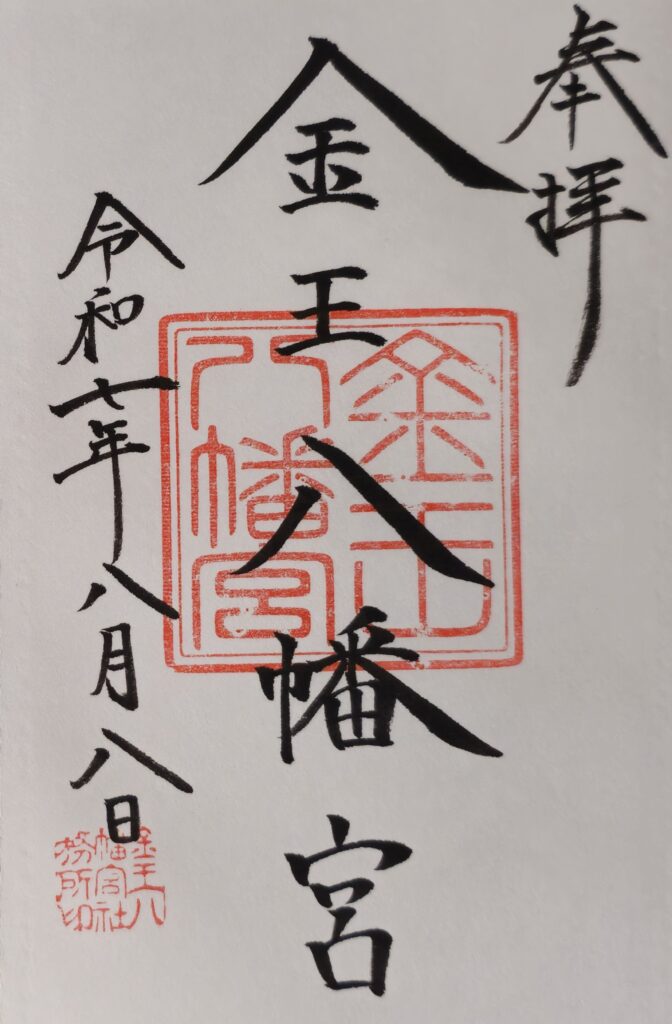 奉拝
金王八幡宮
金王
八幡宮
令和七年八月八日
金王八
幡宮社
務所印